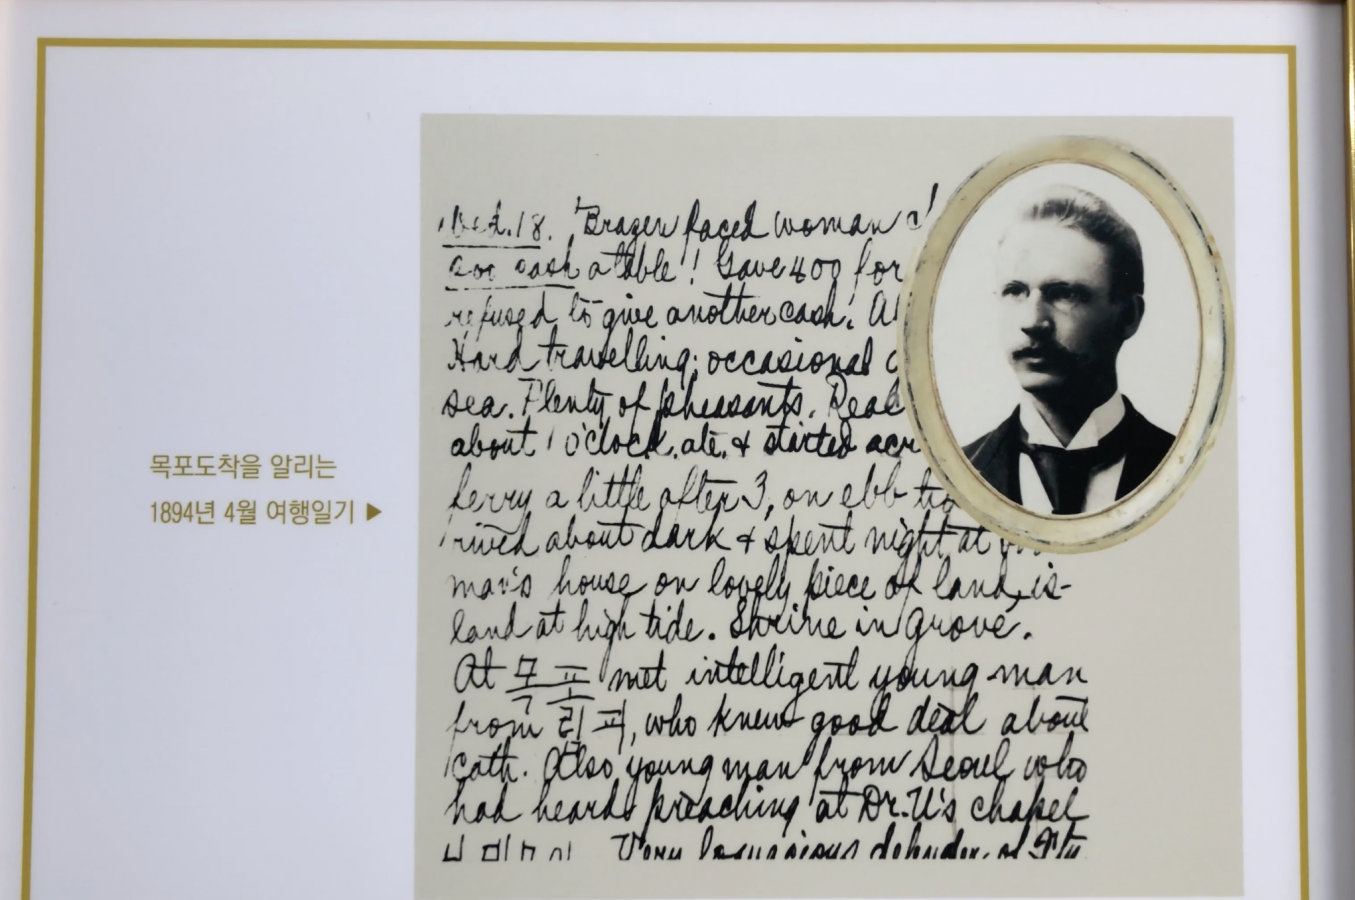 목포도착을 알리는
1894년 4월 여행일기 ▶
Wed. 18. Brazen faced woman
500 cash a table! Gave 400 for
refused to give another cash.
Hard travelling; occasional
sea. Plenty of pheasants.
about 1 o'clock, ate, & started
ferry a little after 3, on ebb
rived about dark & spent night at
man's house on lovely piece of land, is-
land at high tide. Shrine in grove.
At 목포 met intelligent young man
from who knew good deal about
cath. Also young man from Seoul who
had heard preaching at Dr. U's chapel
Very